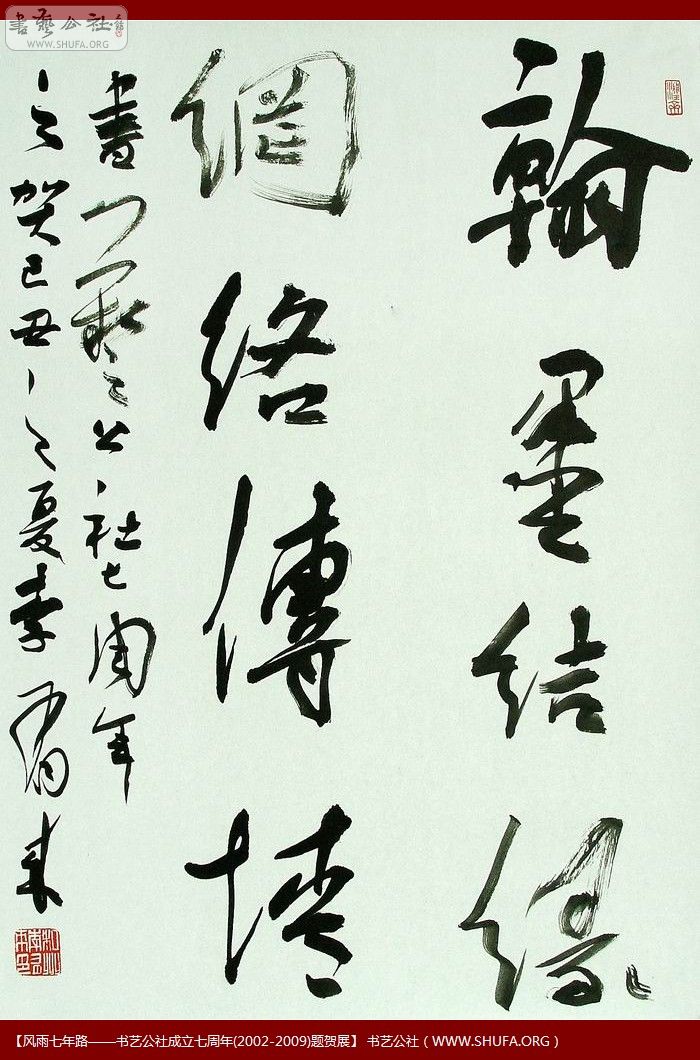 書藝公社
WWW.SHUFA.ORG
翰墨结缘
網络傳情
書艺公社七周年
之贺己丑之夏李
【风雨七年路——书艺公社成立七周年(2002-2009)题贺展】 书艺公社（WWW.SHUFA.ORG）